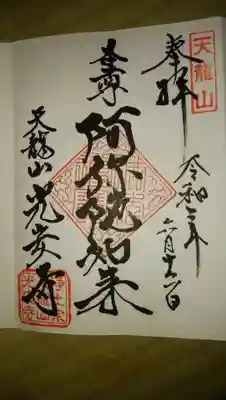 天龍山
奉拝
令和二年
六月十六日
本尊
阿弥陀如来
天龍山光安寺